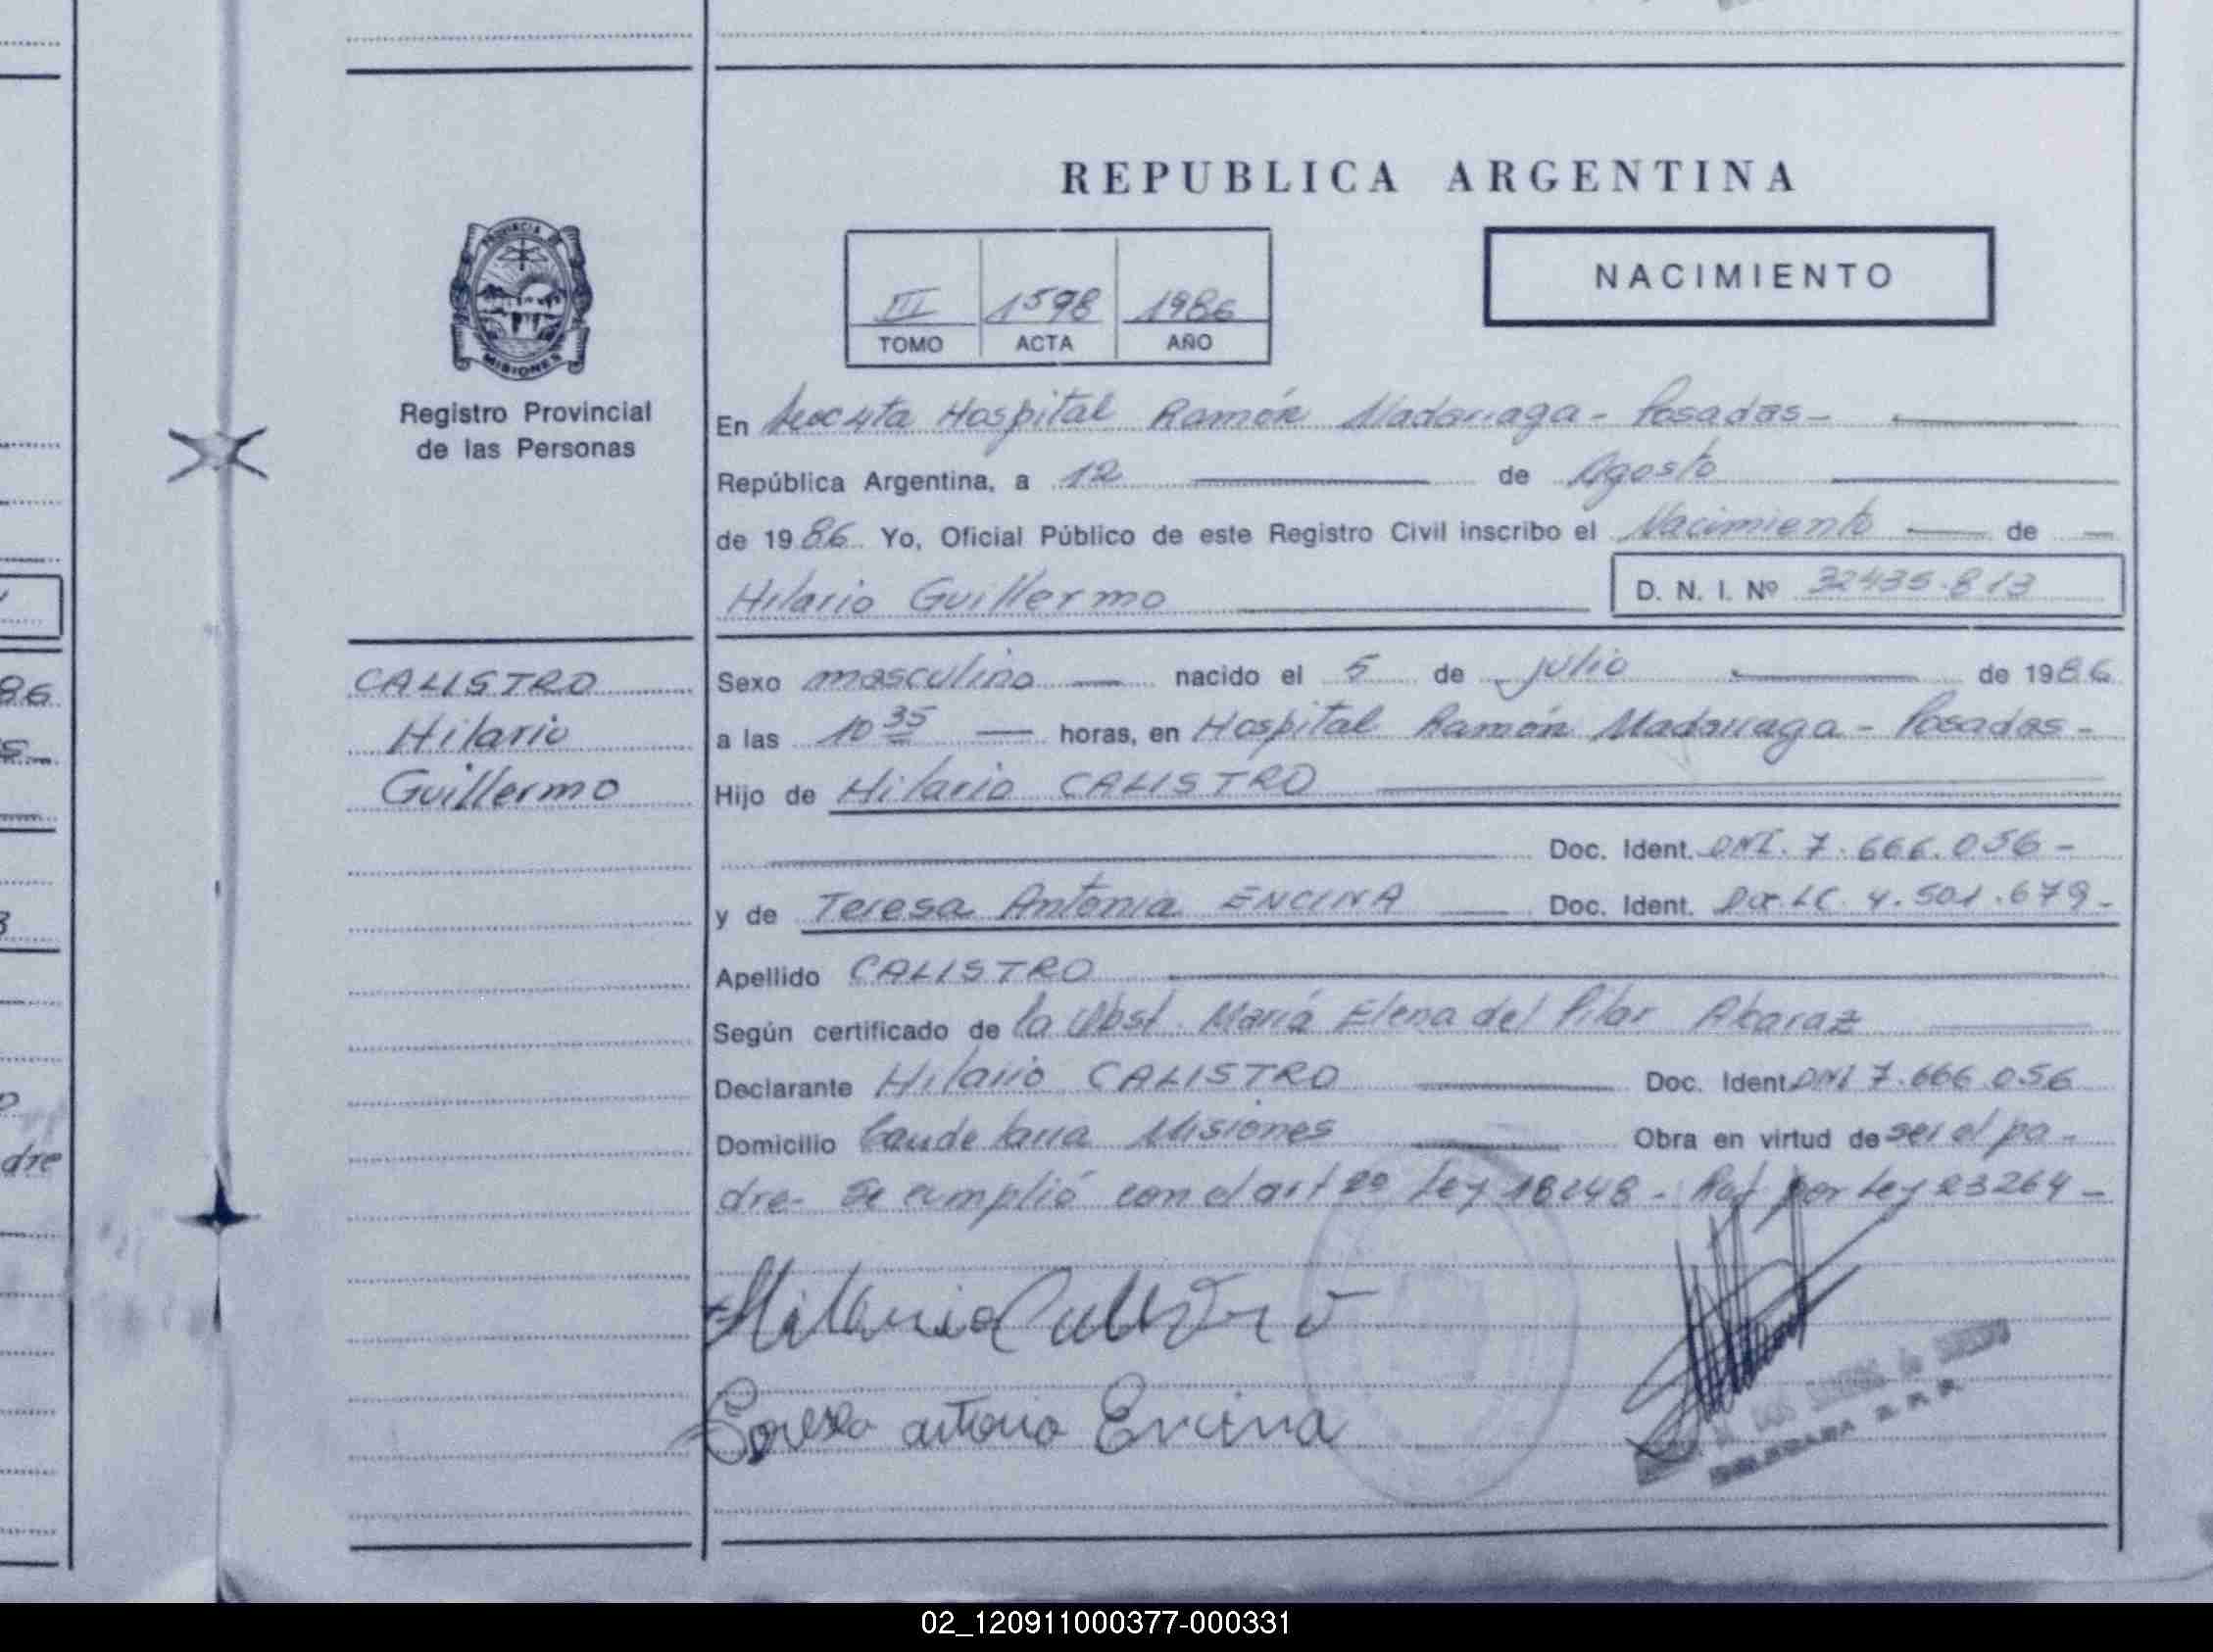 REPUBLICA ARGENTINA
NACIMIENTO
III 1598 1986
TOMO ACTA AÑO
PROVINCIA DE
MISIONES
Registro Provincial
de las Personas
En Hospital Ramón Madariaga - Posadas -
República Argentina, a 12 de Agosto
de 1986 Yo, Oficial Público de este Registro Civil inscribo el Nacimiento de
Hilario Guillermo D. N. I. Nº 32435.813
CALISTRO
Hilario
Guillermo
Sexo masculino nacido el 5 de julio de 1986
a las 10 35 horas, en Hospital Ramón Madariaga - Posadas -
Hijo de Hilario CALISTRO
Doc. Ident. DNI. 7.666.056 -
y de Teresa Antonia ENCINA Doc. Ident. LC. 4.501.679 -
Apellido CALISTRO
Según certificado de la Obst. María Elena del Pilar Alcaraz
Declarante Hilario CALISTRO Doc. Ident. DNI 7.666.056
Domicilio Candelaria Misiones Obra en virtud de ser el pa-
dre - Se cumplió con el art 20 Ley 18248 - por Ley 23264 -
Hilario Calistro
Teresa antonia Encina
86
dre
02_120911000377-000331